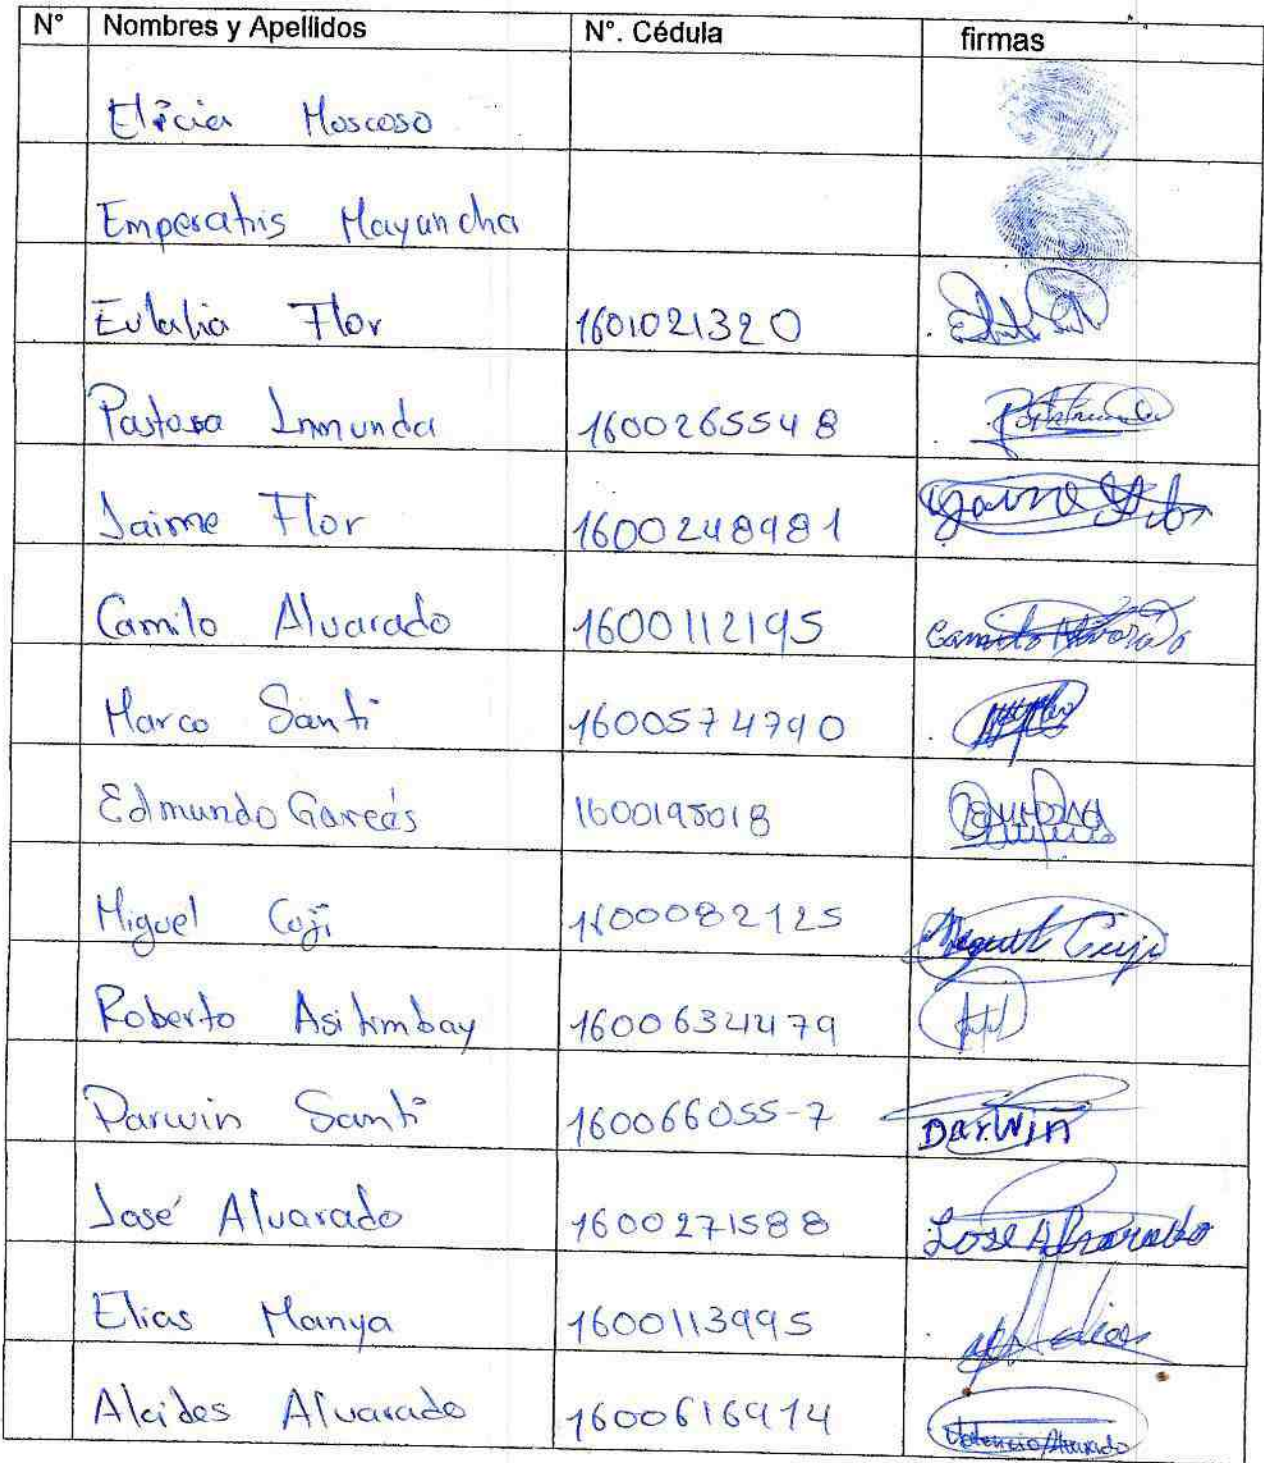 N° Nombres y Apellidos N°. Cédula firmas
Elicia Moscoso
Emperatris Mayancha
Eulalia Flor 1601021320
Pastora Inmunda 1600265548
Jaime Flor 1600248981 Jaime Flor
Camilo Alvarado 1600112195 Camilo Alvarado
Marco Santi 1600574790
Edmundo Garcés 1600195018
Miguel Cuji 1600082125 Miguel Cuji
Roberto Asitimbay 1600634479
Darwin Santi 160066055-7 DarWin
José Alvarado 1600271588 Jose Alvarado
Elias Manya 1600113995
Alcides Alvarado 1600616914 Alvarado